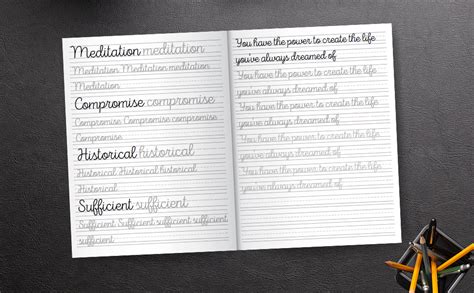 Meditation meditation
Meditation Meditation meditation
Meditation
Compromise compromise
Compromise Compromise compromise
Compromise
Historical historical
Historical Historical historical
Historical
Sufficient sufficient
Sufficient Sufficient sufficient
sufficient
You have the power to create the life
you've always dreamed of
You have the power to create the life
you've always dreamed of
You have the power to create the life
you've always dreamed of
You have the power to create the life
you've always dreamed of
You have the power to create the life
you've always dreamed of